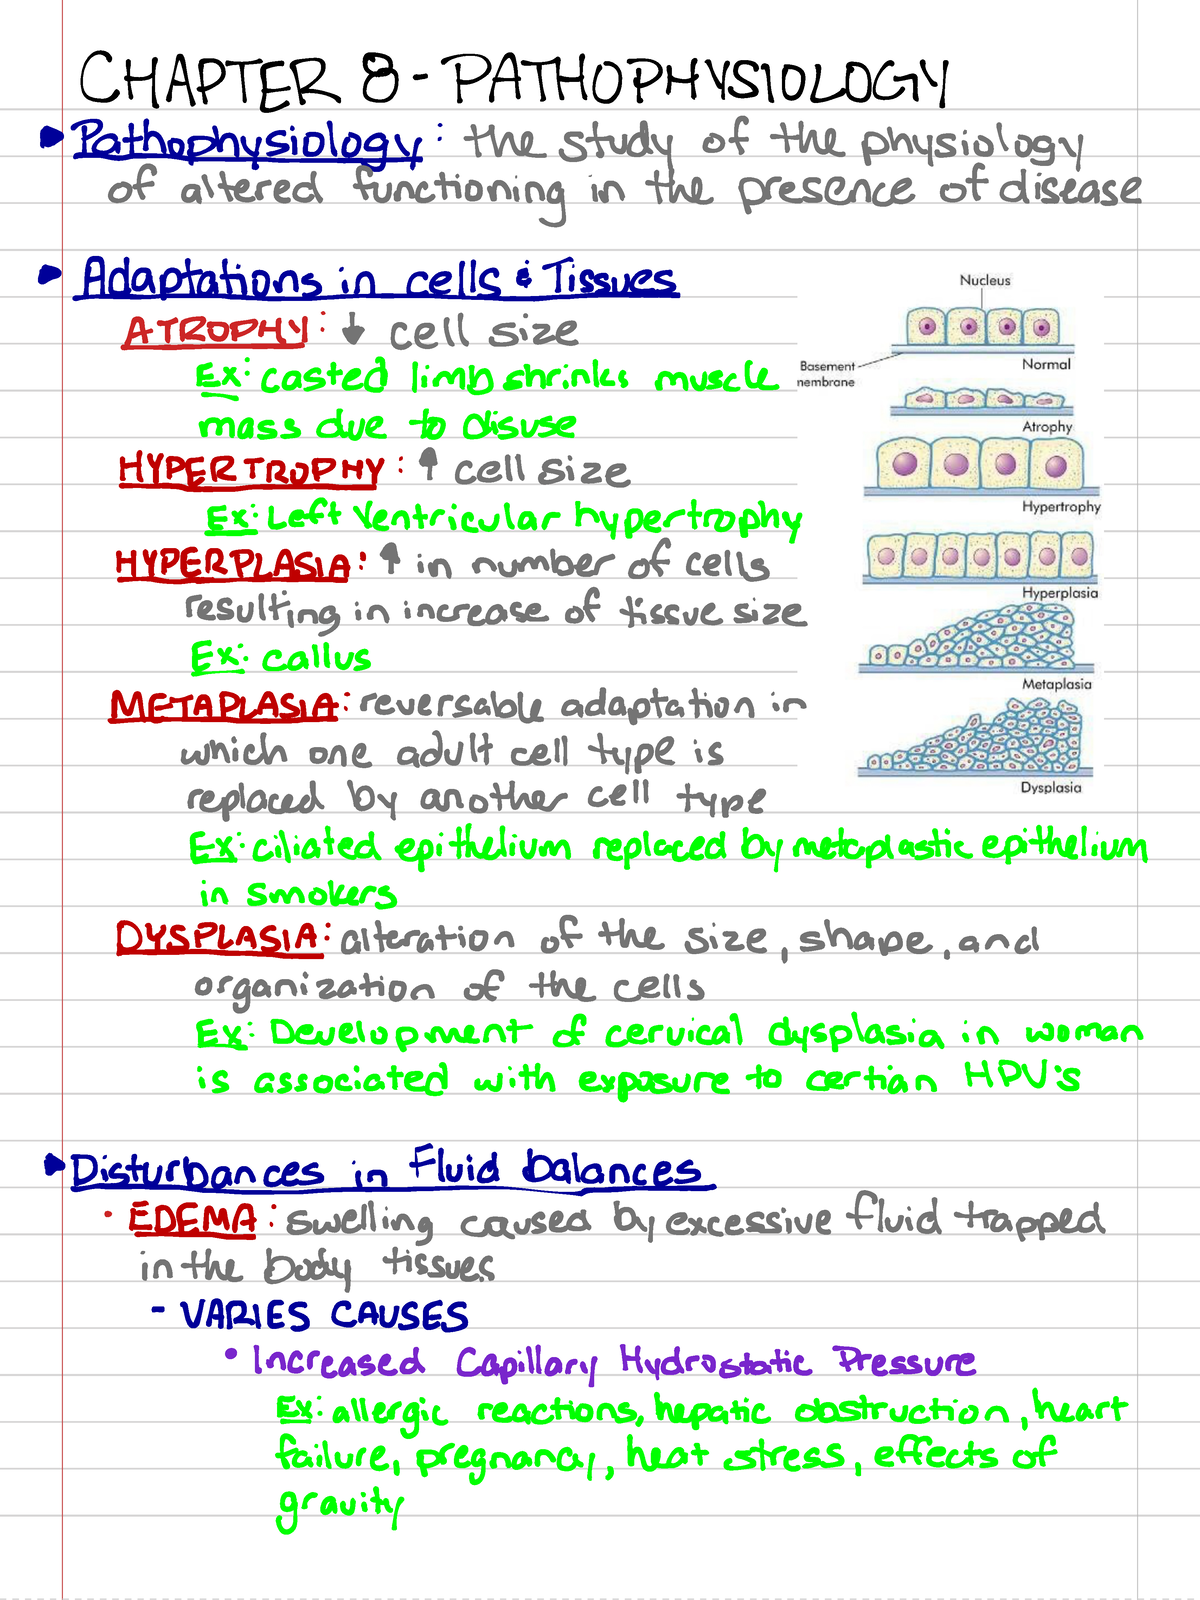 CHAPTER 8 - PATHOPHYSIOLOGY
Pathophysiology: the study of the physiology
of altered functioning in the presence of disease
Adaptations in cells & Tissues
ATROPHY: ↓ cell size
Ex: casted limb shrinks muscle
mass due to disuse
HYPERTROPHY: ↑ cell size
Ex: Left Ventricular hypertrophy
HYPERPLASIA: ↑ in number of cells
resulting in increase of tissue size
Ex: callus
METAPLASIA: reversable adaptation in
which one adult cell type is
replaced by another cell type
Ex: ciliated epithelium replaced by metaplastic epithelium
in smokers
DYSPLASIA: alteration of the size, shape, and
organization of the cells
Ex: Development of cervical dysplasia in woman
is associated with exposure to certian HPV's
Nucleus
Basement
membrane
Normal
Atrophy
Hypertrophy
Hyperplasia
Metaplasia
Dysplasia
Disturbances in Fluid balances
· EDEMA: swelling caused by excessive fluid trapped
in the body tissues
- VARIES CAUSES
• Increased Capillary Hydrostatic Pressure
Ex: allergic reactions, hepatic obstruction, heart
failure, pregnancy, heat stress, effects of
gravity